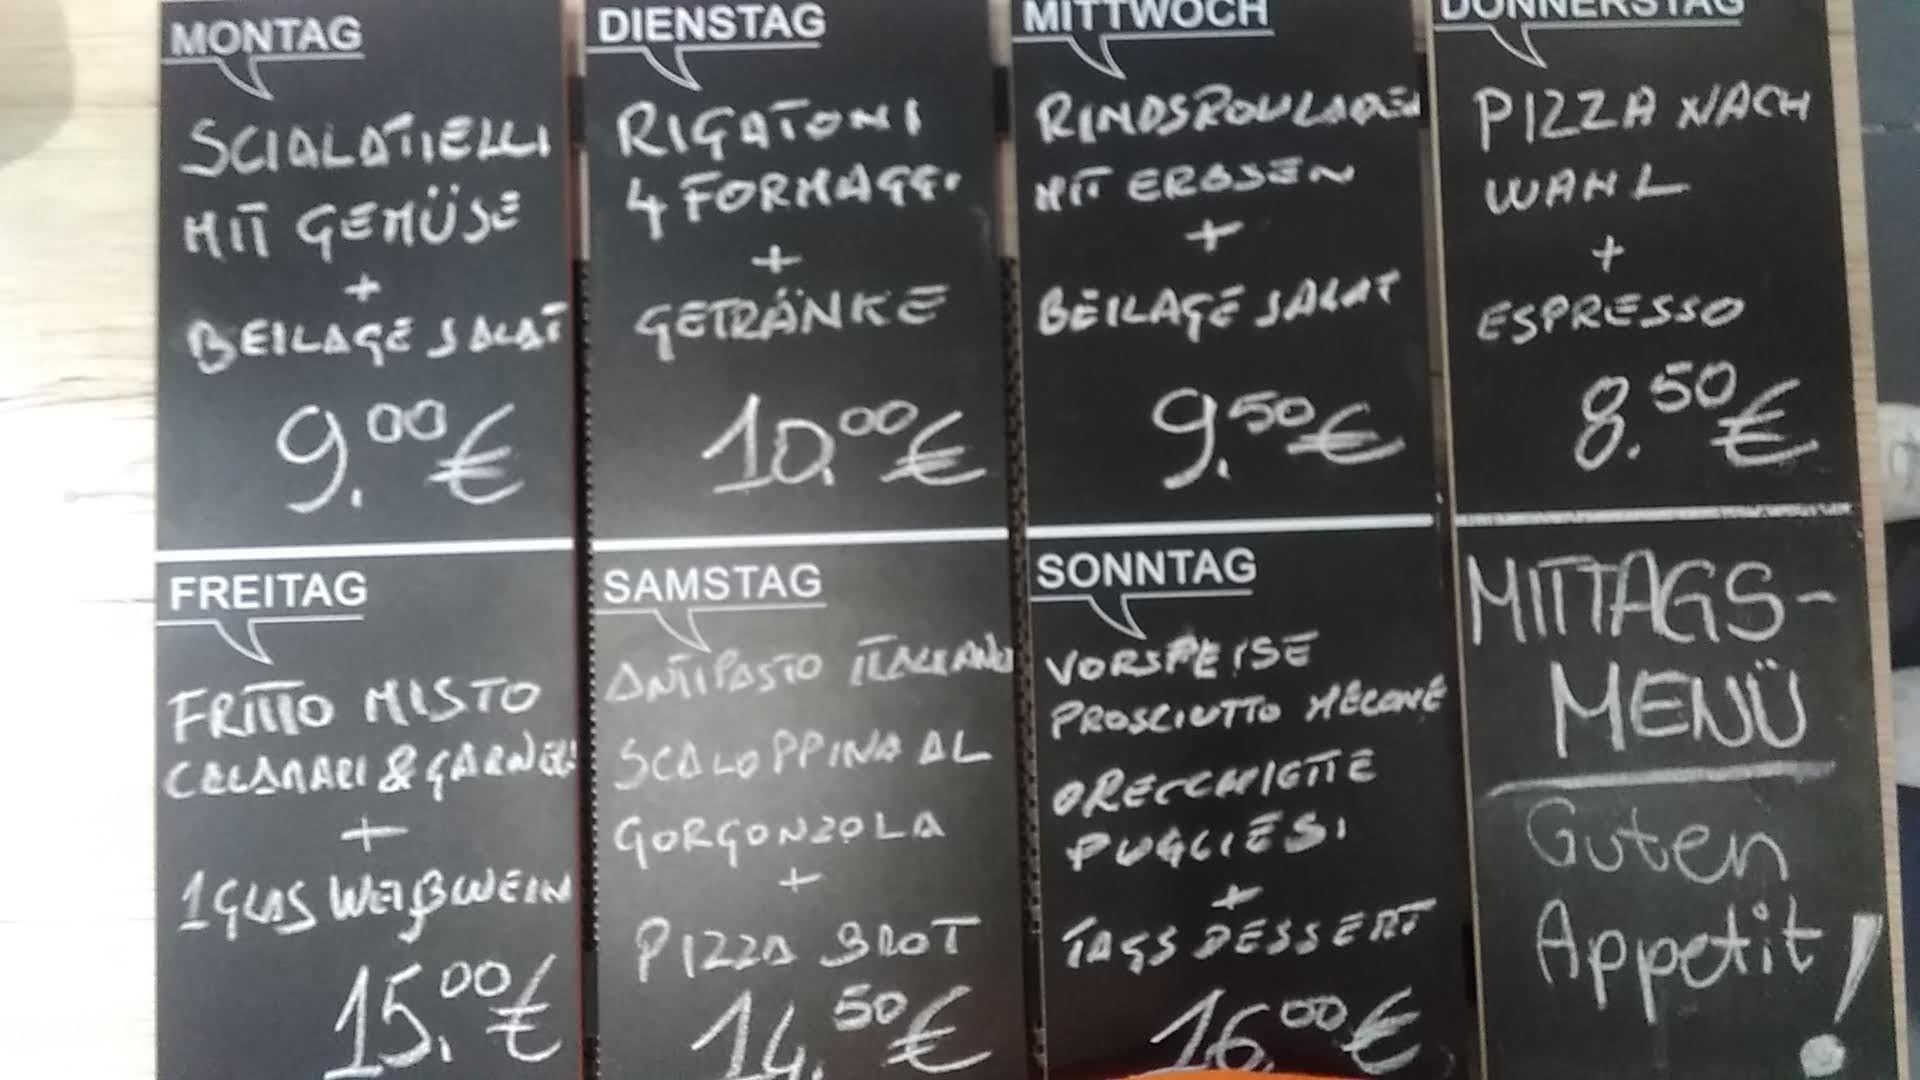 MONTAG
SCIALATIELLI
MIT GEMÜSE
+
BEILAGE SALAT
9.00€
DIENSTAG
RIGATONI
4 FORMAGGI
+
GETRÄNKE
10.00€
MITTWOCH
RINDSROULADEN
MIT ERBSEN
+
BEILAGE SALAT
9.50€
DONNERSTAG
PIZZA NACH
WAHL
+
ESPRESSO
8.50€
FREITAG
FRITTO MISTO
CALAMARI & GARNELE
+
1 GLAS WEIßWEIN
15.00€
SAMSTAG
ANTIPASTO ITALIANO
SCALOPPINA AL
GORGONZOLA
+
PIZZA BROT
14.50€
SONNTAG
VORSPEISE
PROSCIUTTO MELONE
ORECCHIETTE
PUGLIESI
+
TAGS DESSERT
16.00€
MITTAGS-
MENÜ
Guten
Appetit!